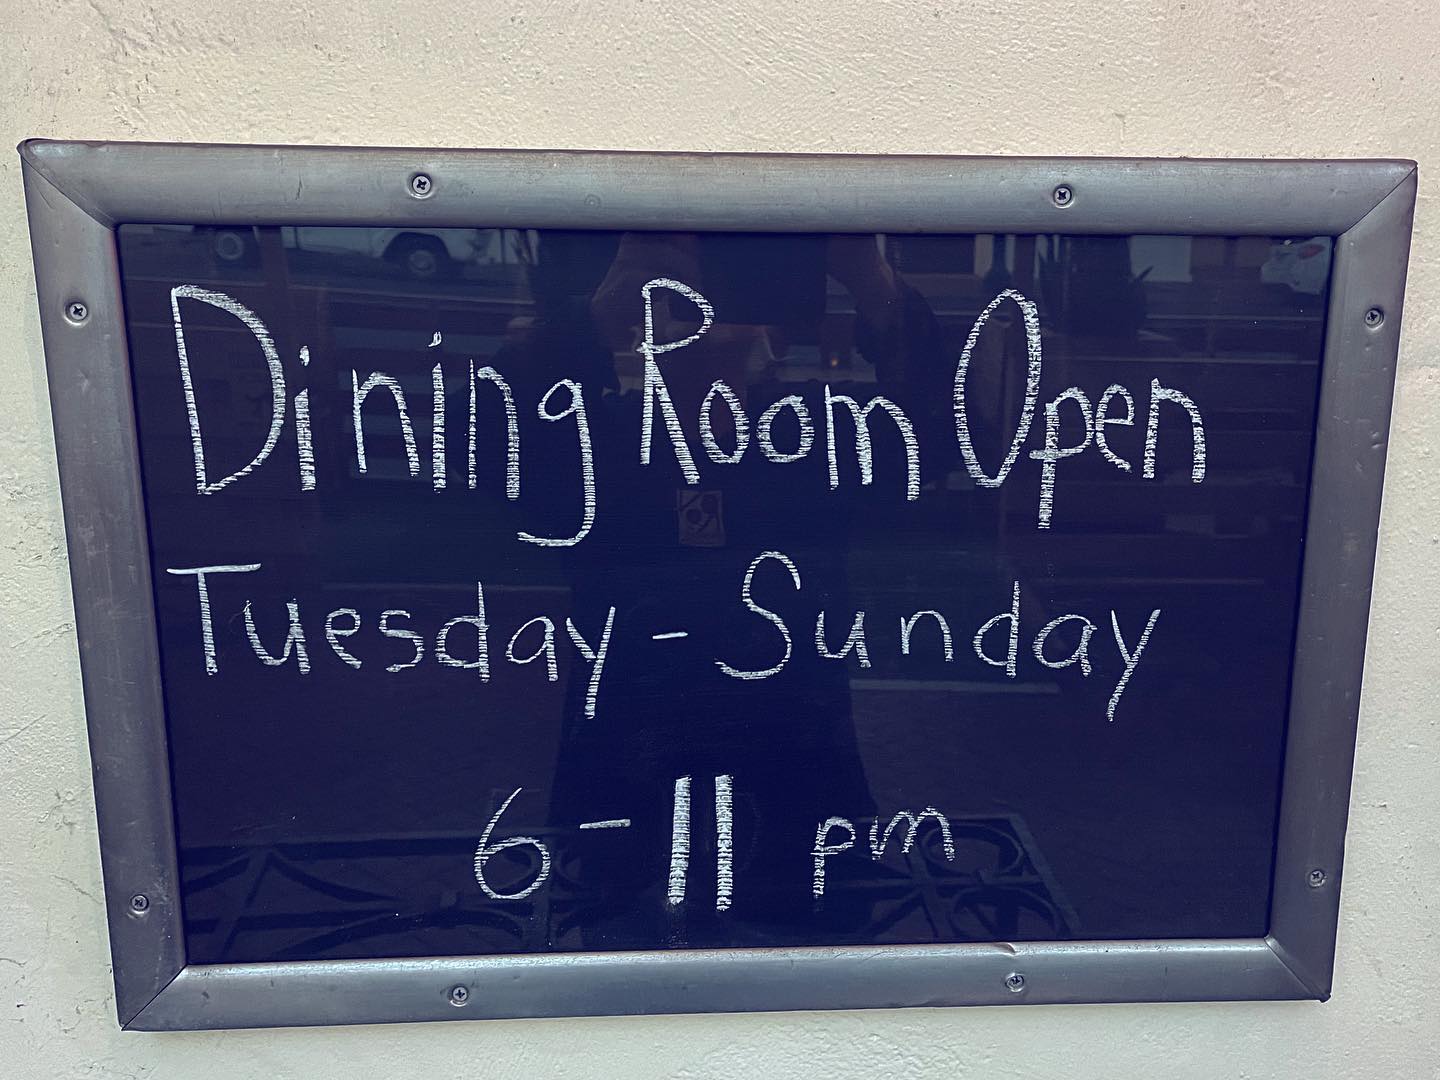 Dining Room Open
Tuesday - Sunday
6 - 11 pm